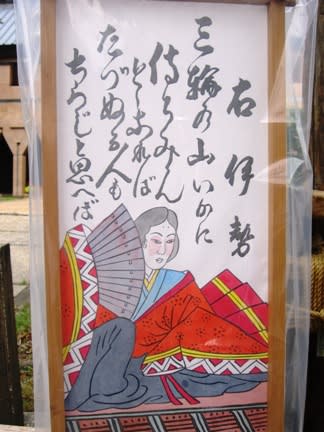 右 伊勢
三輪の山いかに
待ちみん
としふれば
たづぬる人も
あらじと思へば